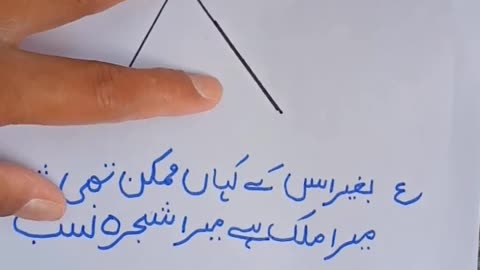 ع بغیر اس کے کہاں ممکن تھی
میرا ملک ہے میرا شجرہ نسب